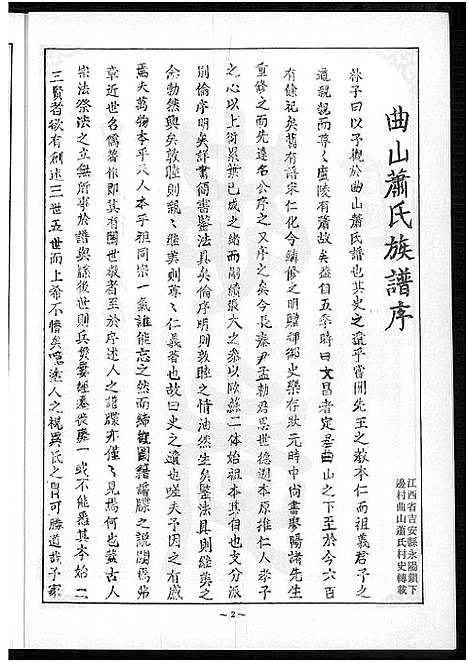 曲山蕭氏族譜序
江西省吉安縣永陽鎮下
邊村曲山蕭氏村史轉載
林子曰以予觀於曲山蕭氏譜也其史之遺乎嘗聞先王之教本仁而祖義君子之
道親親而尊〻廬陵有蕭故矣蓋自五季時曰文昌者定居曲山之下至於今六百
有餘祀矣舊有譜宋仁化令鏻修之明贈御史樂存狀元時中尚書廖陽諸先生
重修之而先達名公序之又序之矣今長秦尹孟勅君思世德淵本原推仁人孝子
之心以上衍累拱已成之緒而嗣續張大之參以歐蘇二体始祖以下支分派
別倫序明矣詳書備書鑒法具矣倫序明則敦睦之情油然生矣鑒法具則繼美之
念勃然興矣敦睦則親〻繼美則尊〻仁義著也故曰史之遺也嗟夫予因之有感
焉夫萬物本乎天人本乎祖同宗一氣誰能忘之然而締觀圖籍譜牒之說闕焉弗
章近世名儒著作即其有關世教者至於序述人之譜牒亦僅〻見焉何也蓋古人
宗法祭法之立無所事於譜與牒後世則兵燹蔓延遷喪雖一或不能悉其本始二
三賢者欲有創述三世五世而上希不惛矣嗚逖人之視吳氏之冑可勝道哉予家
～2～